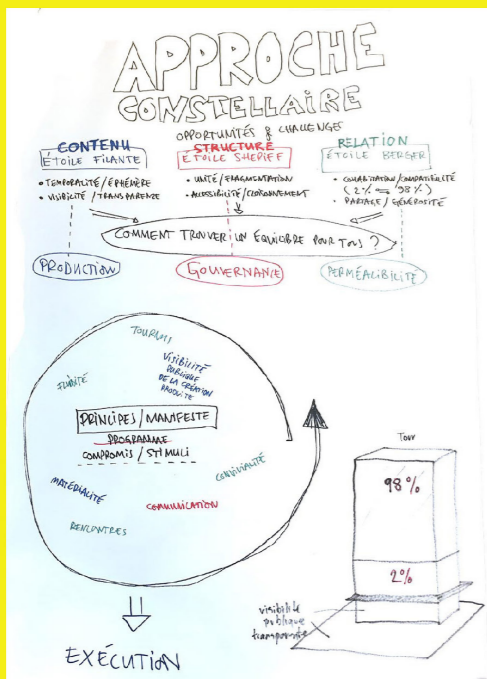 APPROCHE
CONSTELLAIRE
OPPORTUNITÉS & CHALLENGES
CONTENU
ÉTOILE FILANTE
• TEMPORALITÉ/ÉPHÉMÈRE
• VISIBILITÉ/TRANSPARENZE
STRUCTURE
ÉTOILE SHERIFF
• UNITÉ/FRAGMENTATION
• ACCESSIBILITÉ/CLOISONNEMENT
RELATION
ÉTOILE BERGER
• COHABITATION/COMPATIBILITÉ
(2% 98%)
• PARTAGE/GÉNÉROSITÉ
COMMENT TROUVER UN ÉQUILIBRE POUR TOUS ?
PRODUCTION
GOUVERNANCE
PERMÉALIBILITÉ
TOURNUS
VISIBILITÉ
PUBLIQUE
DE LA CRÉATION
PRODUITE
FLUIDITÉ
PRINCIPES/MANIFESTE
PROGRAMME
COMPROMIS/STIMULI
CONVIVIALITÉ
MATÉRIALITÉ
COMMUNICATION
RENCONTRES
EXÉCUTION
Tour
98%
2%
visibilité
publique
transparente